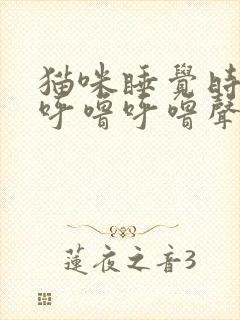 猫咪睡覺時
呼嚕呼嚕聲
蓮夜之音3